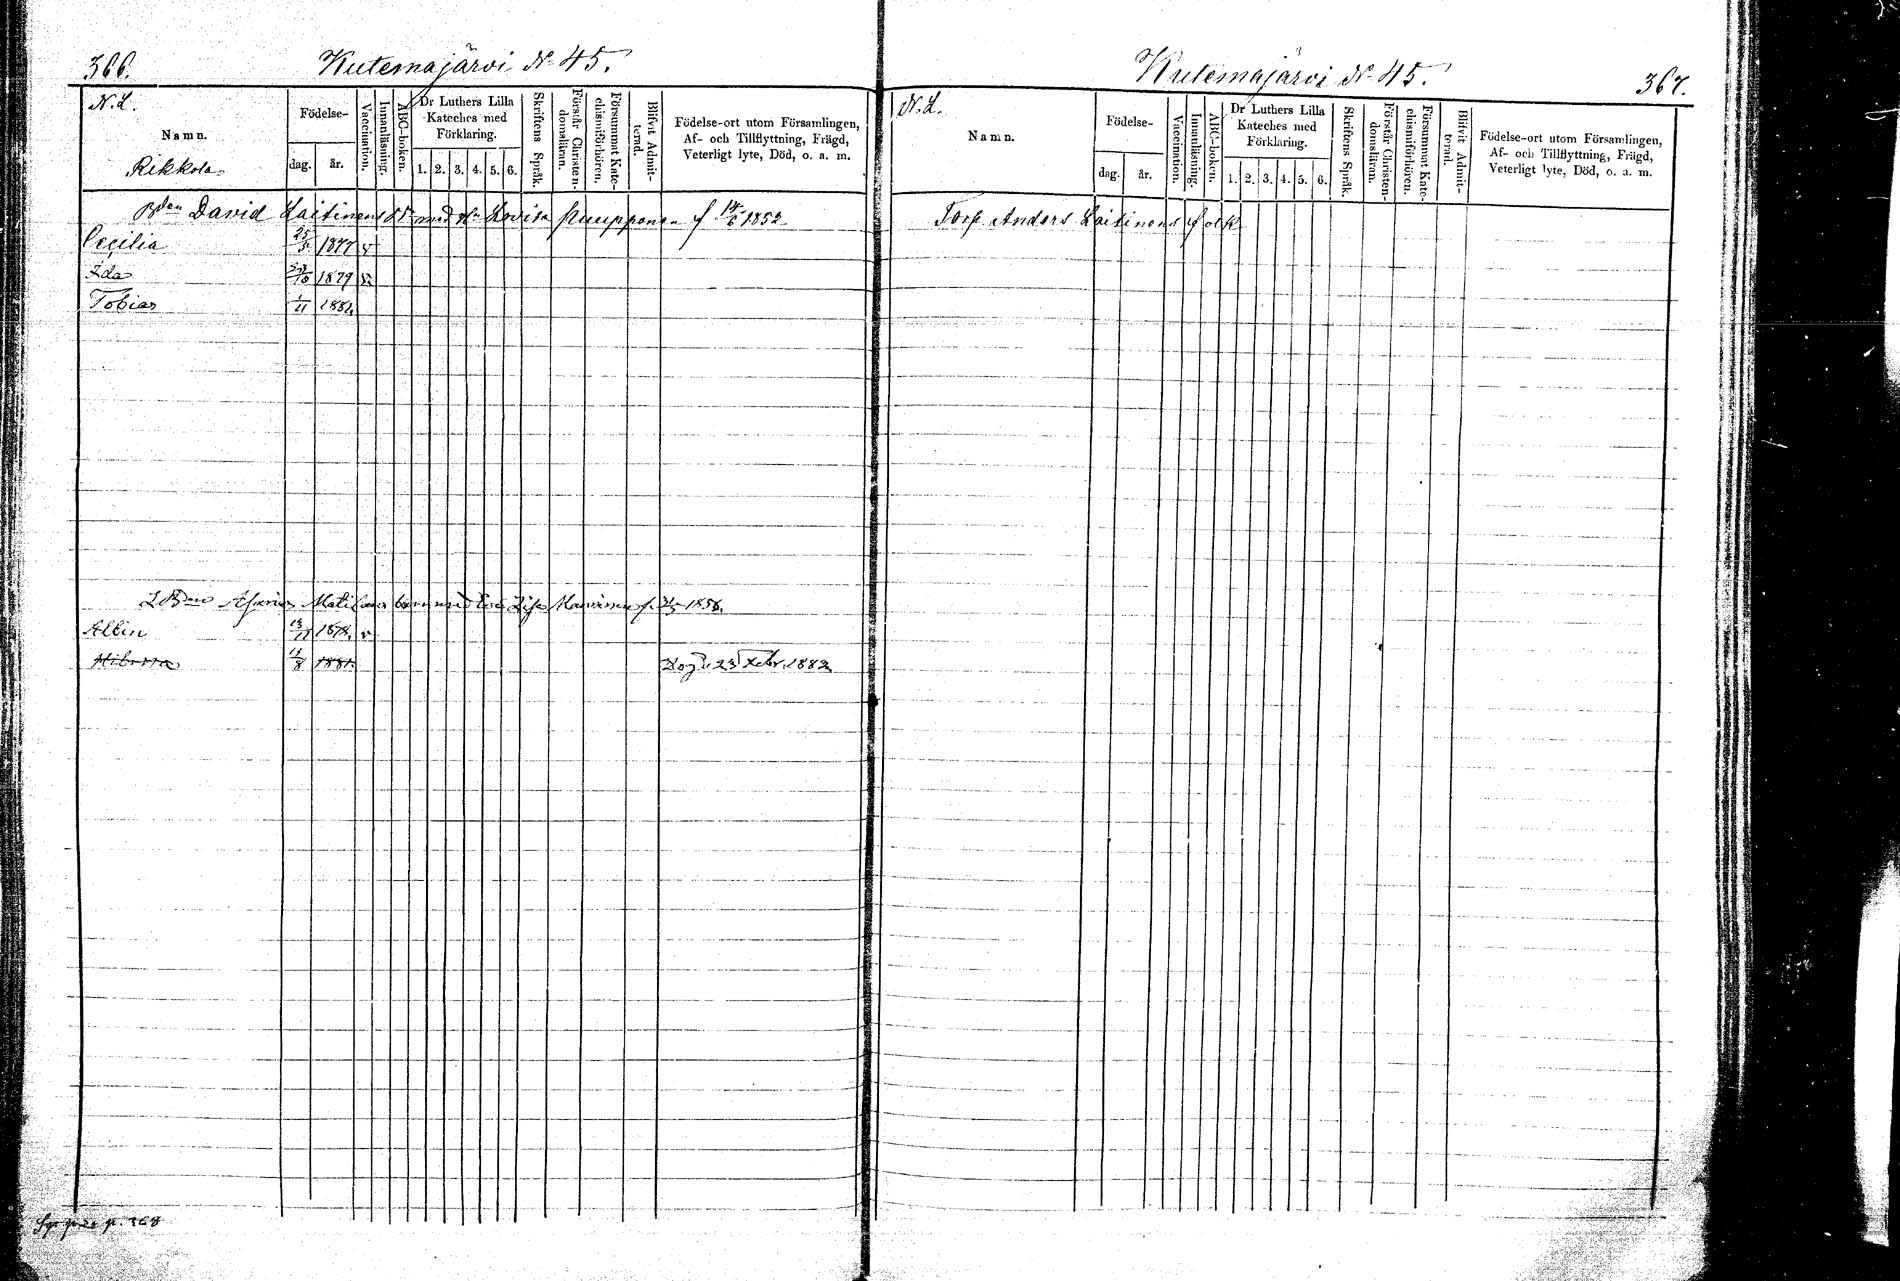 366.
Kutemajärvi No 45.
N. L.
Namn.
Rikkola
Födelse-
dag.
år.
Vaccination.
Innanläsning.
ABC-boken.
Dr Luthers Lilla
Kateches med
Förklaring.
1. 2. 3. 4. 5. 6.
Skriftens Språk.
Förstår Christen-
domsläran.
Försummat Kate-
chismiförhören.
Blifvit Admit-
terad.
Födelse-ort utom Församlingen,
Af- och Tillflyttning, Frägd,
Veterligt lyte, Död, o. a. m.
Bden David Laitinens med Lovisa Puupponen f 1852
Cecilia 25/5 1877 v
Ida /10 1879 v
Tobias 1/11 1881
Matilas barn med Eva Lisa Manninen f. 1856.
Albin 1878. v
13/8 1881. 23 Febr. 1882
Kutemajärvi No 45.
367.
N. L.
Namn.
Födelse-
dag.
år.
Vaccination.
Innanläsning.
ABC-boken.
Dr Luthers Lilla
Kateches med
Förklaring.
1. 2. 3. 4. 5. 6.
Skriftens Språk.
Förstår Christen-
domsläran.
Försummat Kate-
chismiförhören.
Blifvit Admit-
terad.
Födelse-ort utom Församlingen,
Af- och Tillflyttning, Frägd,
Veterligt lyte, Död, o. a. m.
Torp. Anders Laitinens folk
p. 368